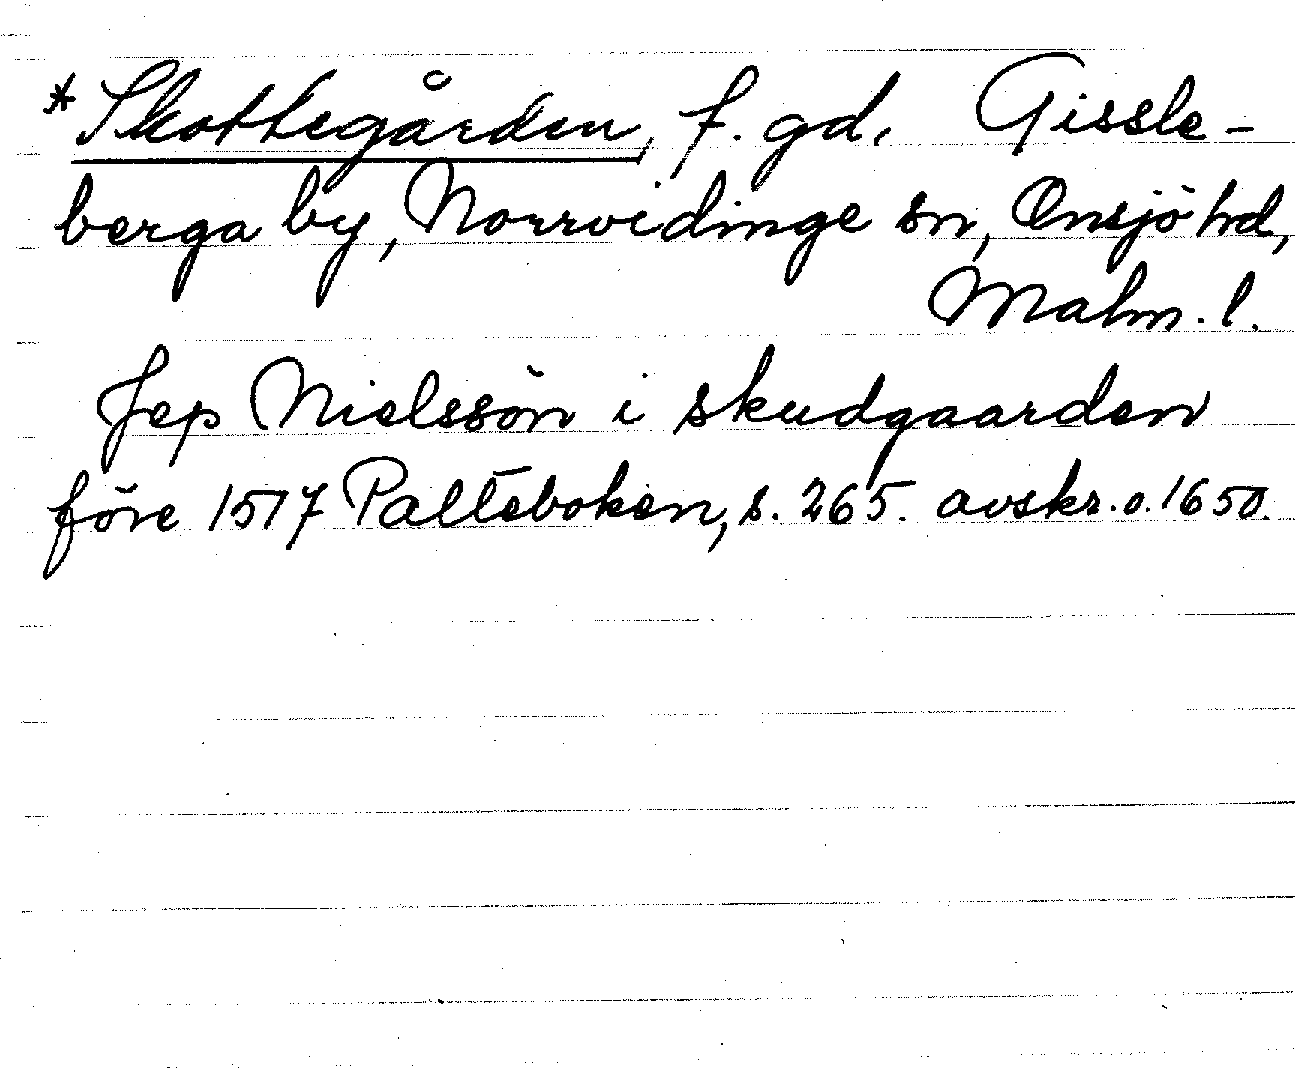 *Skottegården, f. gd. Gissle-
berga by, Norrvidinge sn, Onsjö hd,
Malm. l.
Jep Nielssön i skudgaarden
före 1517 Palteboken, s. 265. avskr. o. 1650.